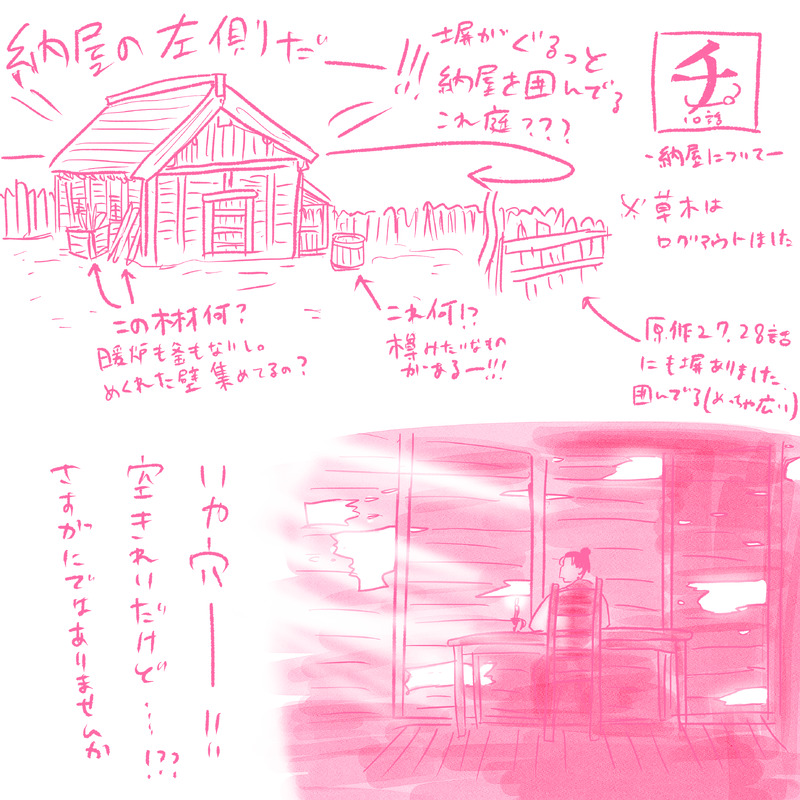 納屋の左側だー!!!
塀がぐるっと
納屋を囲んでる
これ庭???
チ。
10話
-納屋についてー
※草木は
ログアウトしました
この木材何?
暖炉も釜もないし。
めくれた壁集めてるの?
これ何!?
樽みたいなもの
があるー!!!
原作27.28話
にも塀ありました
囲んでる(めっちゃ広い)
いや穴ー!!
空きれいだけど…!??
さすがにではありませんか